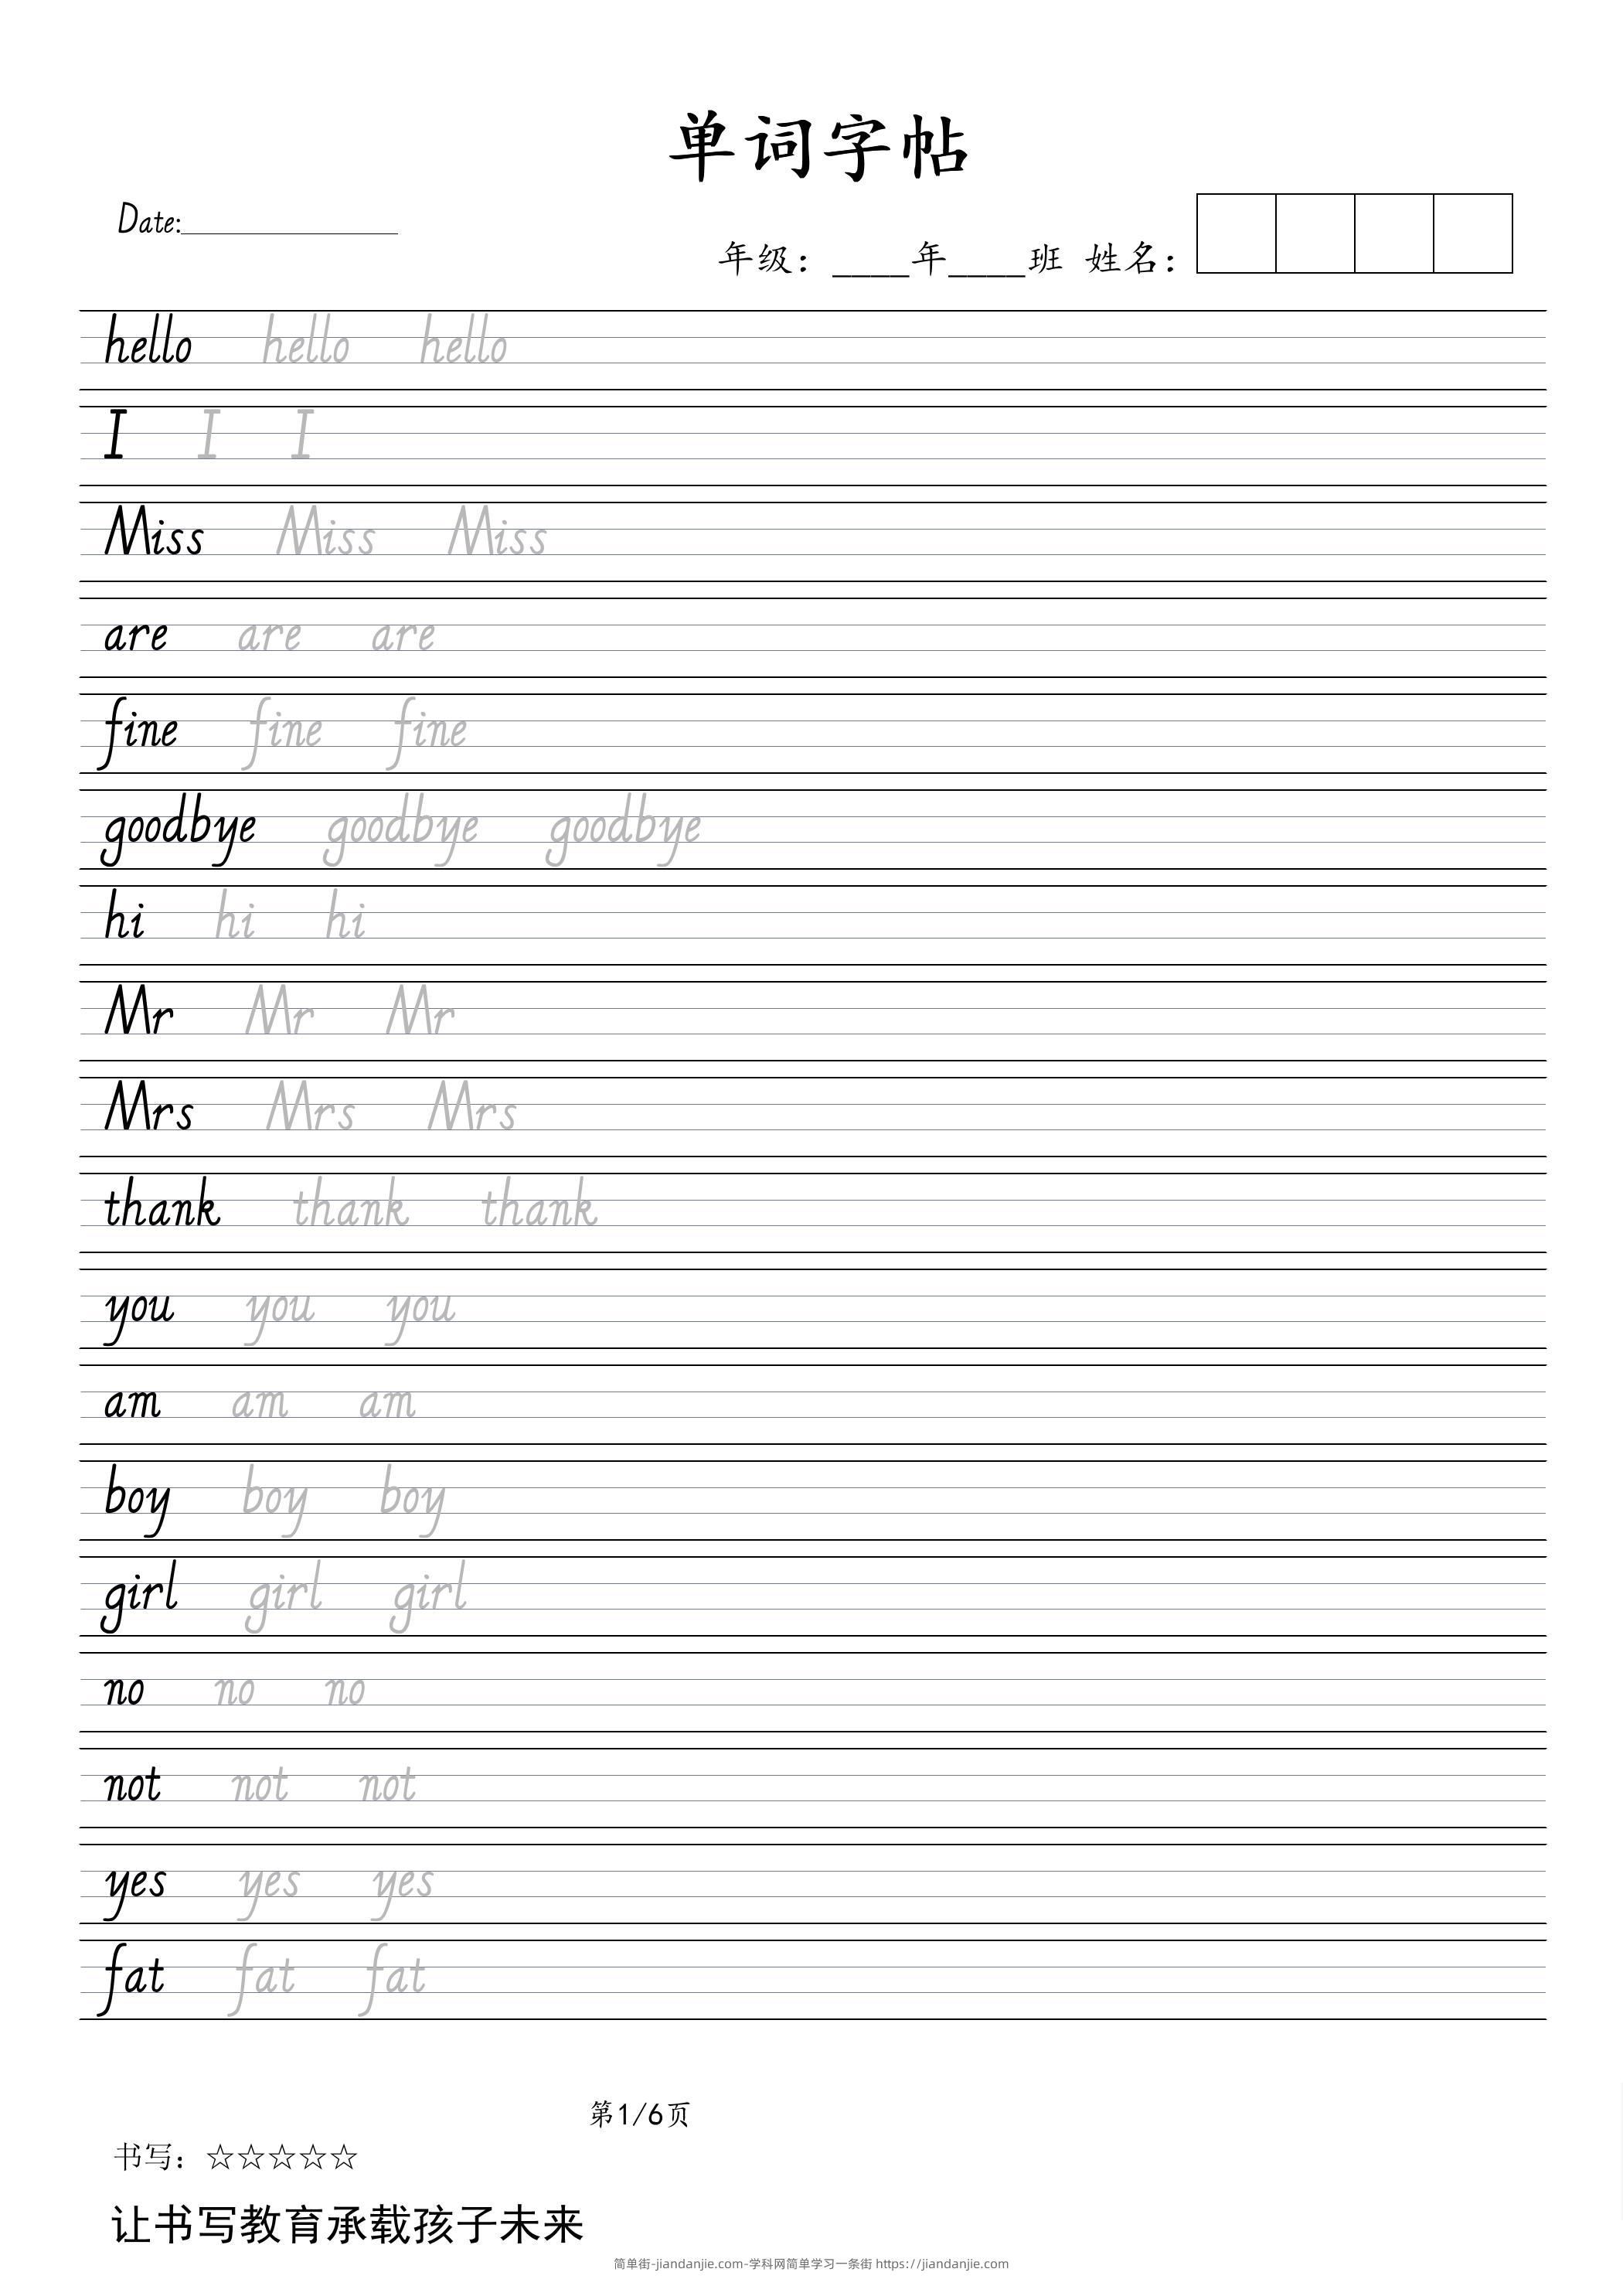 单词字帖
Date:
年级：____年____班 姓名：
hello hello hello
I I I
Miss Miss Miss
are are are
fine fine fine
goodbye goodbye goodbye
hi hi hi
Mr Mr Mr
Mrs Mrs Mrs
thank thank thank
you you you
am am am
boy boy boy
girl girl girl
no no no
not not not
yes yes yes
fat fat fat
第1/6页
书写：☆☆☆☆☆
让书写教育承载孩子未来
简单街-jiandanjie.com-学科网简单学习一条街 https://jiandanjie.com